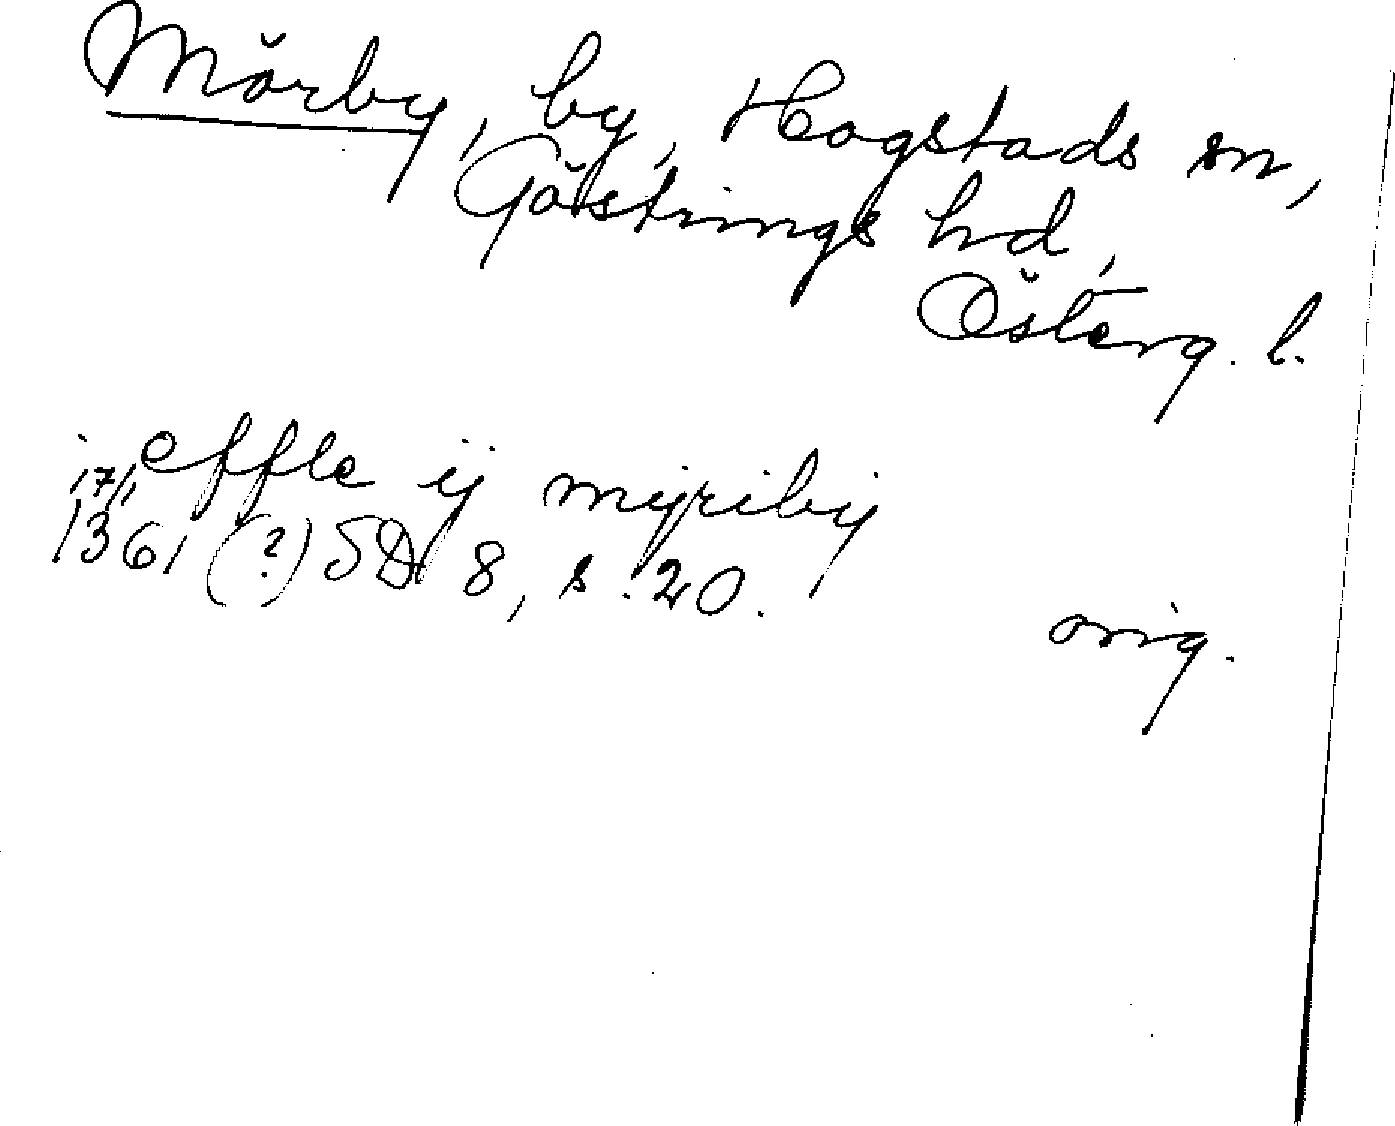 Mörby, by, Hogstads sn,
Göstrings hd,
Österg. l.
effle ij myriby
17/1 1361 (?) SD 8, s. 20.
orig.